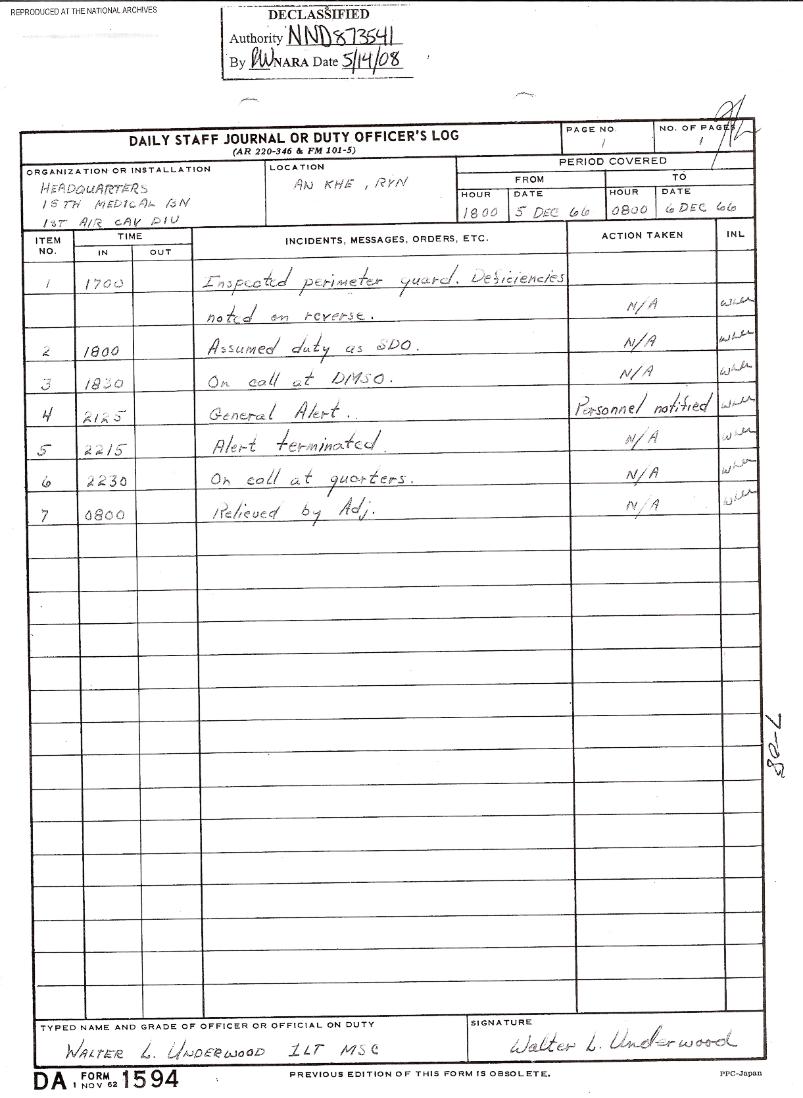 REPRODUCED AT THE NATIONAL ARCHIVES
DECLASSIFIED
Authority NND873541
By RW NARA Date 5/14/08
DAILY STAFF JOURNAL OR DUTY OFFICER'S LOG
(AR 220-346 & FM 101-5)
PAGE NO.
1
NO. OF PAGES
1
ORGANIZATION OR INSTALLATION
HEADQUARTERS
15TH MEDICAL BN
1ST AIR CAV DIV
LOCATION
AN KHE, RVN
PERIOD COVERED
FROM TO
HOUR DATE HOUR DATE
1800 5 DEC 66 0800 6 DEC 66
ITEM NO. TIME IN OUT INCIDENTS, MESSAGES, ORDERS, ETC. ACTION TAKEN INL
1 1700 Inspected perimeter guard. Deficiencies
noted on reverse. N/A
2 1800 Assumed duty as SDO. N/A
3 1830 On call at DMSO. N/A
4 2125 General Alert. Personnel notified
5 2215 Alert terminated N/A
6 2230 On call at quarters. N/A
7 0800 Relieved by Adj. N/A
TYPED NAME AND GRADE OF OFFICER OR OFFICIAL ON DUTY
WALTER L. UNDERWOOD 1LT MSC
SIGNATURE
Walter L. Underwood
DA FORM 1 NOV 62 1594
PREVIOUS EDITION OF THIS FORM IS OBSOLETE.
PPC-Japan